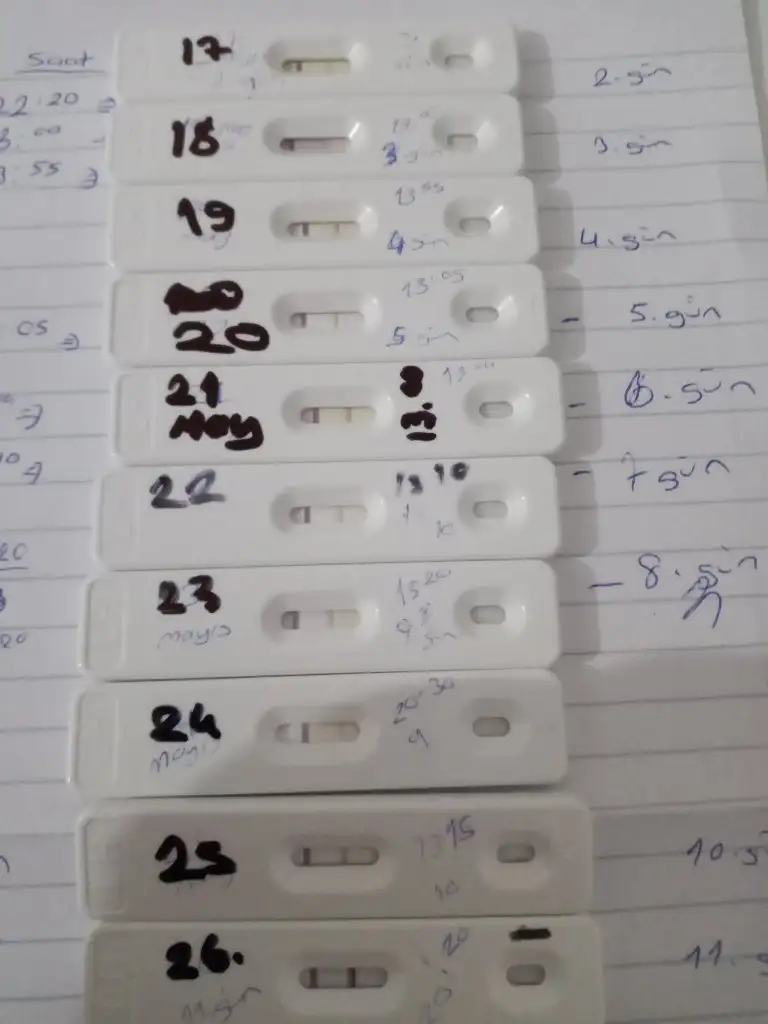 Saat
22:20
17
2.gün
18
3 gün
3.gün
3:55
19
13 55
4 gün
4.gün
05
20
13.05
5 gün
- 5.gün
21
May
- 6.gün
22
13 10
- 7 gün
23
mayıs
13 20
gün
- 8.gün
24
mayıs
20:30
9
25
13 15
10
10.g
26.
11.gün
11.